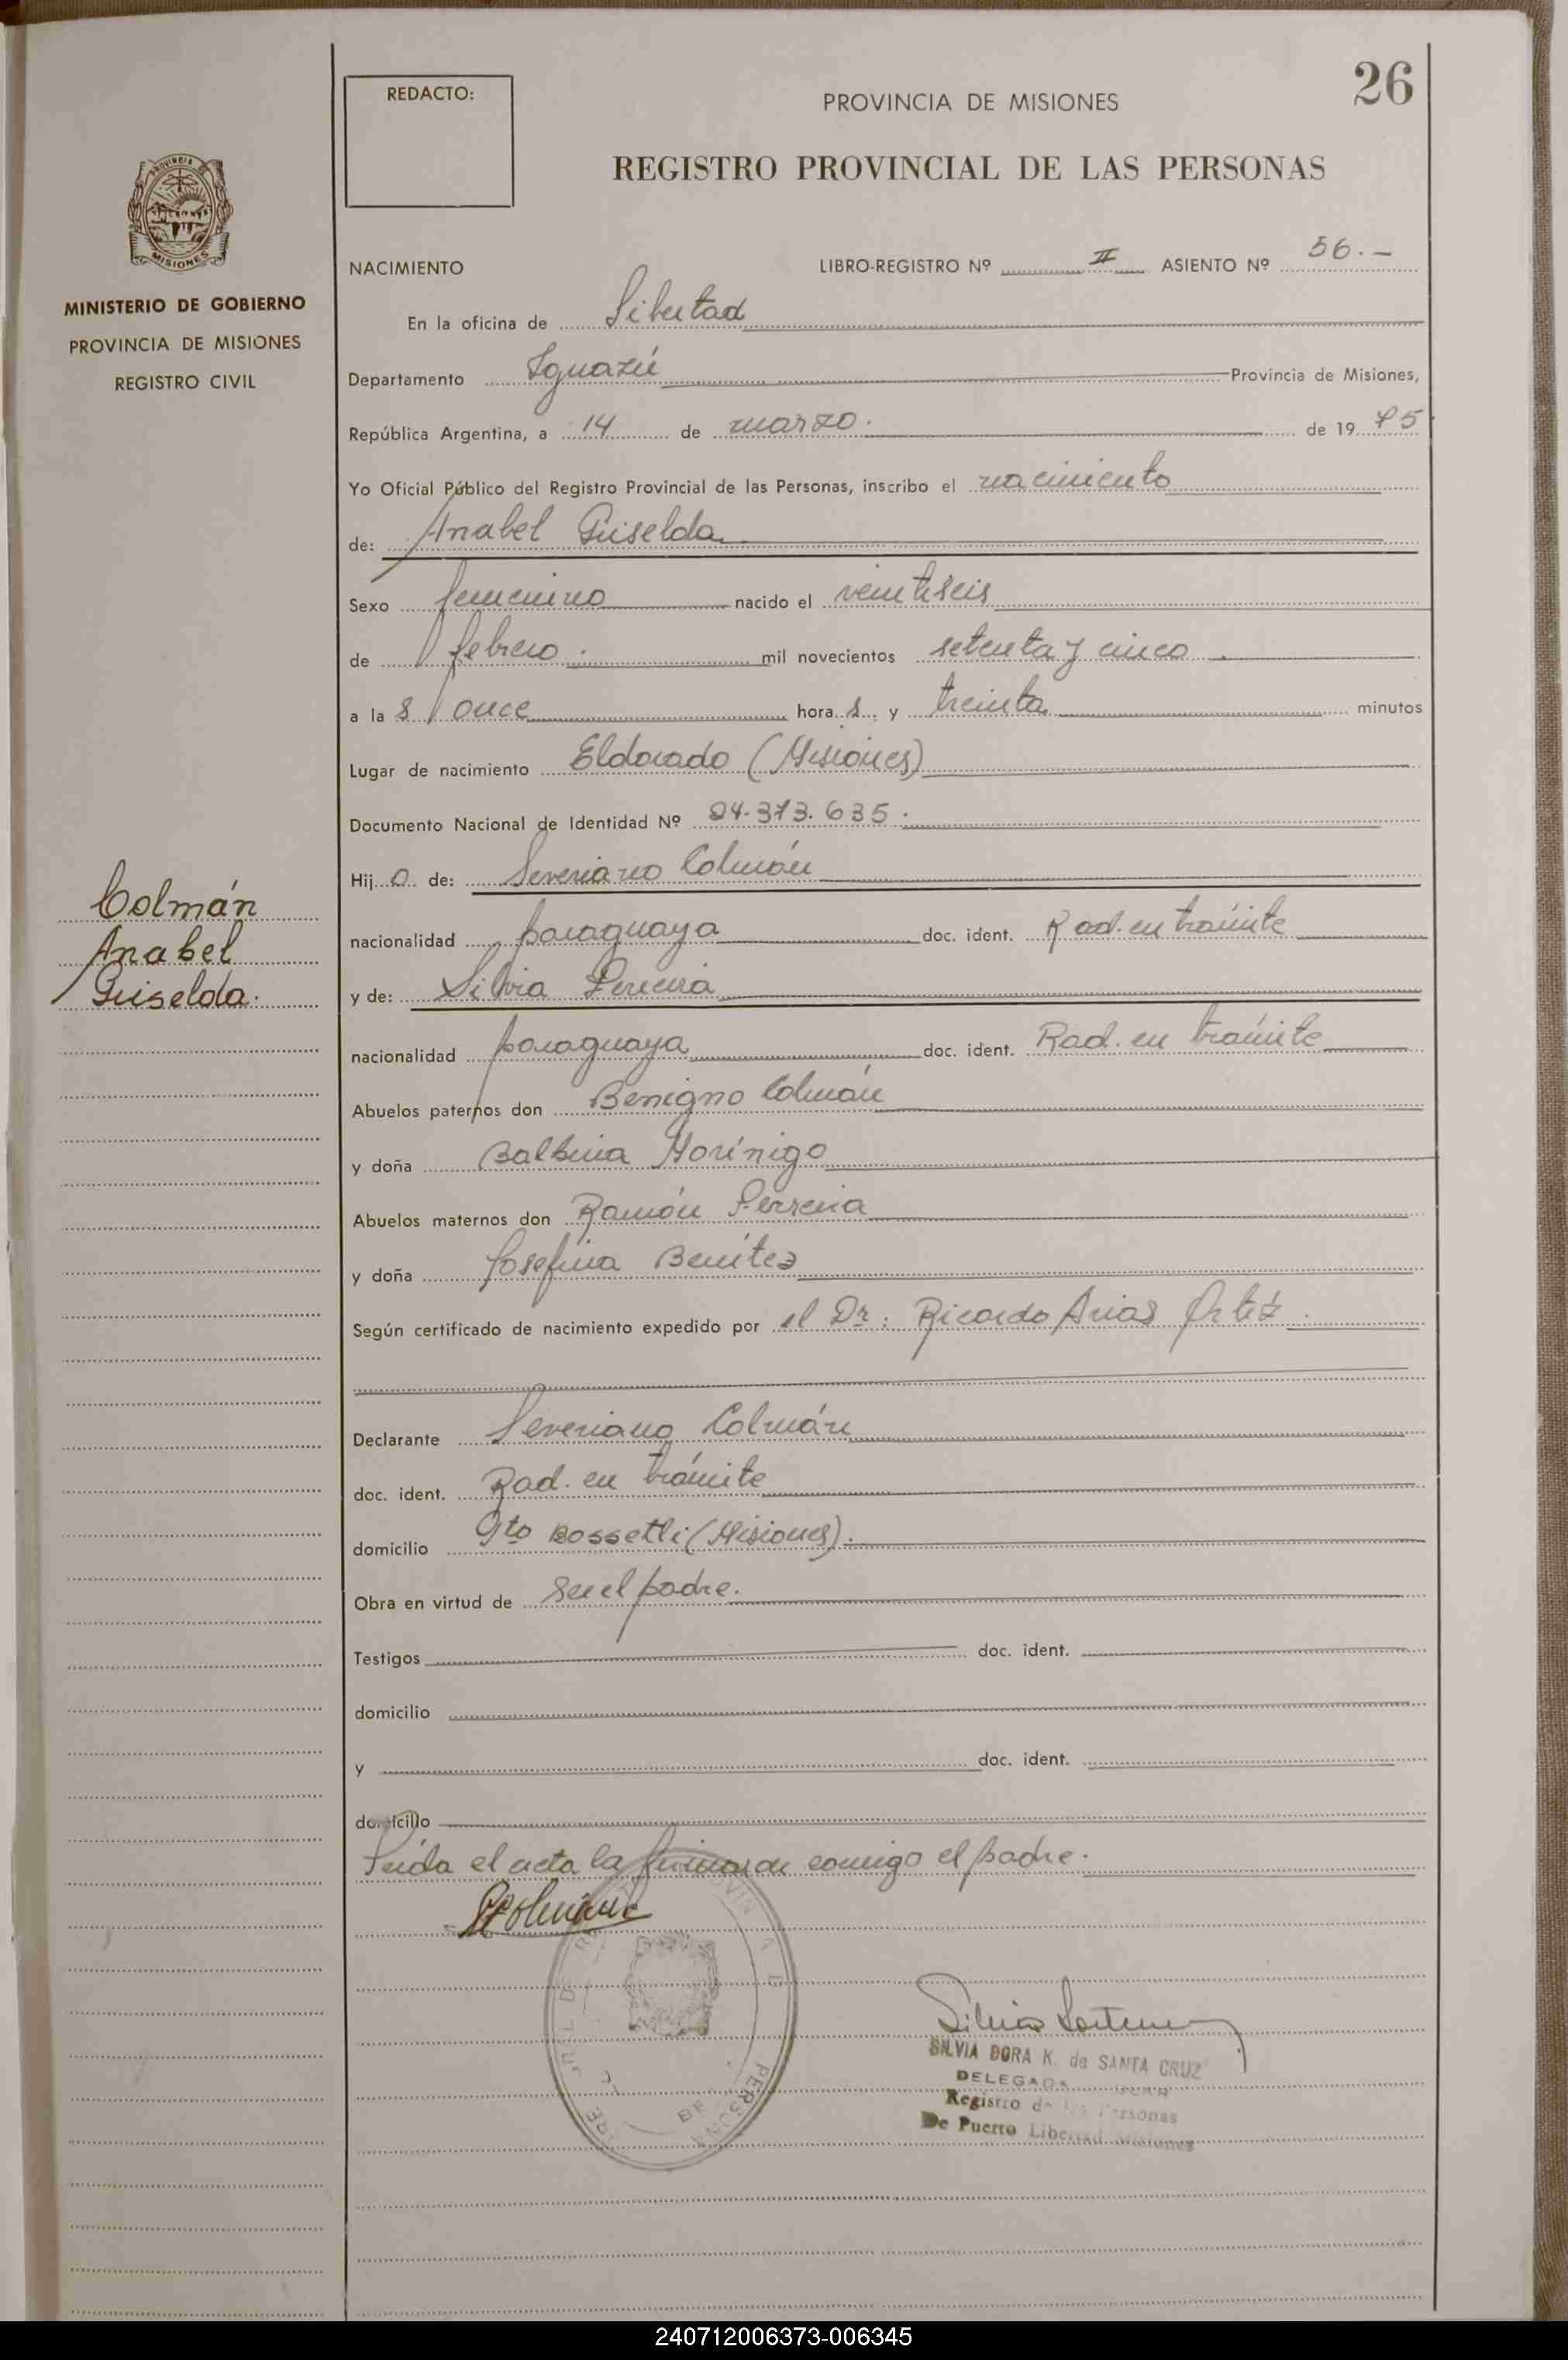 26
REDACTO:
PROVINCIA DE MISIONES
REGISTRO PROVINCIAL DE LAS PERSONAS
PROVINCIA
MISIONES
MINISTERIO DE GOBIERNO
PROVINCIA DE MISIONES
REGISTRO CIVIL
NACIMIENTO LIBRO-REGISTRO Nº II ASIENTO Nº 56.-
En la oficina de Libertad
Departamento Iguazú Provincia de Misiones,
República Argentina, a 14 de marzo. de 19 75
Yo Oficial Público del Registro Provincial de las Personas, inscribo el nacimiento
de: Anabel Griselda
Sexo femenino nacido el veintiseis
de febrero. mil novecientos setenta y cinco.
a la s once hora s y treinta minutos
Lugar de nacimiento Eldorado (Misiones)
Documento Nacional de Identidad Nº 24.373.635.
Hij a de: Severiano Colmán
nacionalidad paraguaya doc. ident. Rad. en trámite
y de: Silvia Pereira
nacionalidad paraguaya doc. ident. Rad. en trámite
Abuelos paternos don Benigno Colmán
y doña Balbina Morínigo
Abuelos maternos don Ramón Perreira
y doña Josefina Benítez
Según certificado de nacimiento expedido por el Dr: Ricardo Arias Ortiz.
Declarante Severiano Colmán
doc. ident. Rad. en trámite
domicilio Gto Bossetti (Misiones).
Obra en virtud de ser el padre.
Testigos doc. ident.
domicilio
y doc. ident.
domicilio
Leída el acta la firman conmigo el padre.
Colmán
Anabel
Griselda.
SILVIA DORA K. de SANTA CRUZ
DELEGADA
Registro de las Personas
De Puerto Libertad Misiones
240712006373-006345